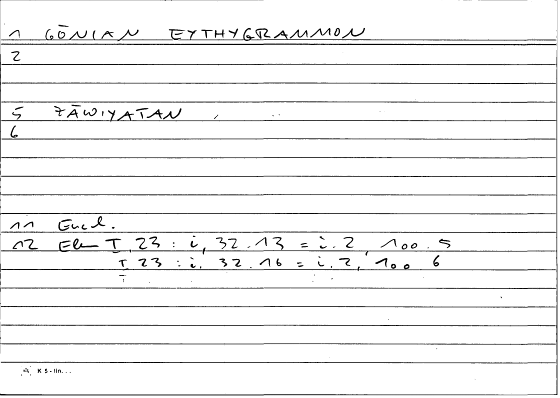 1 GŌNIAN EYTHYGRAMMON
2
5 ZĀWIYATAN
6
11 Eucl.
12 Elem I, 23 : i, 32.13 = i.2, 100.5
I, 23 : i, 32.16 = i.2, 100 6
K 5 - lin...